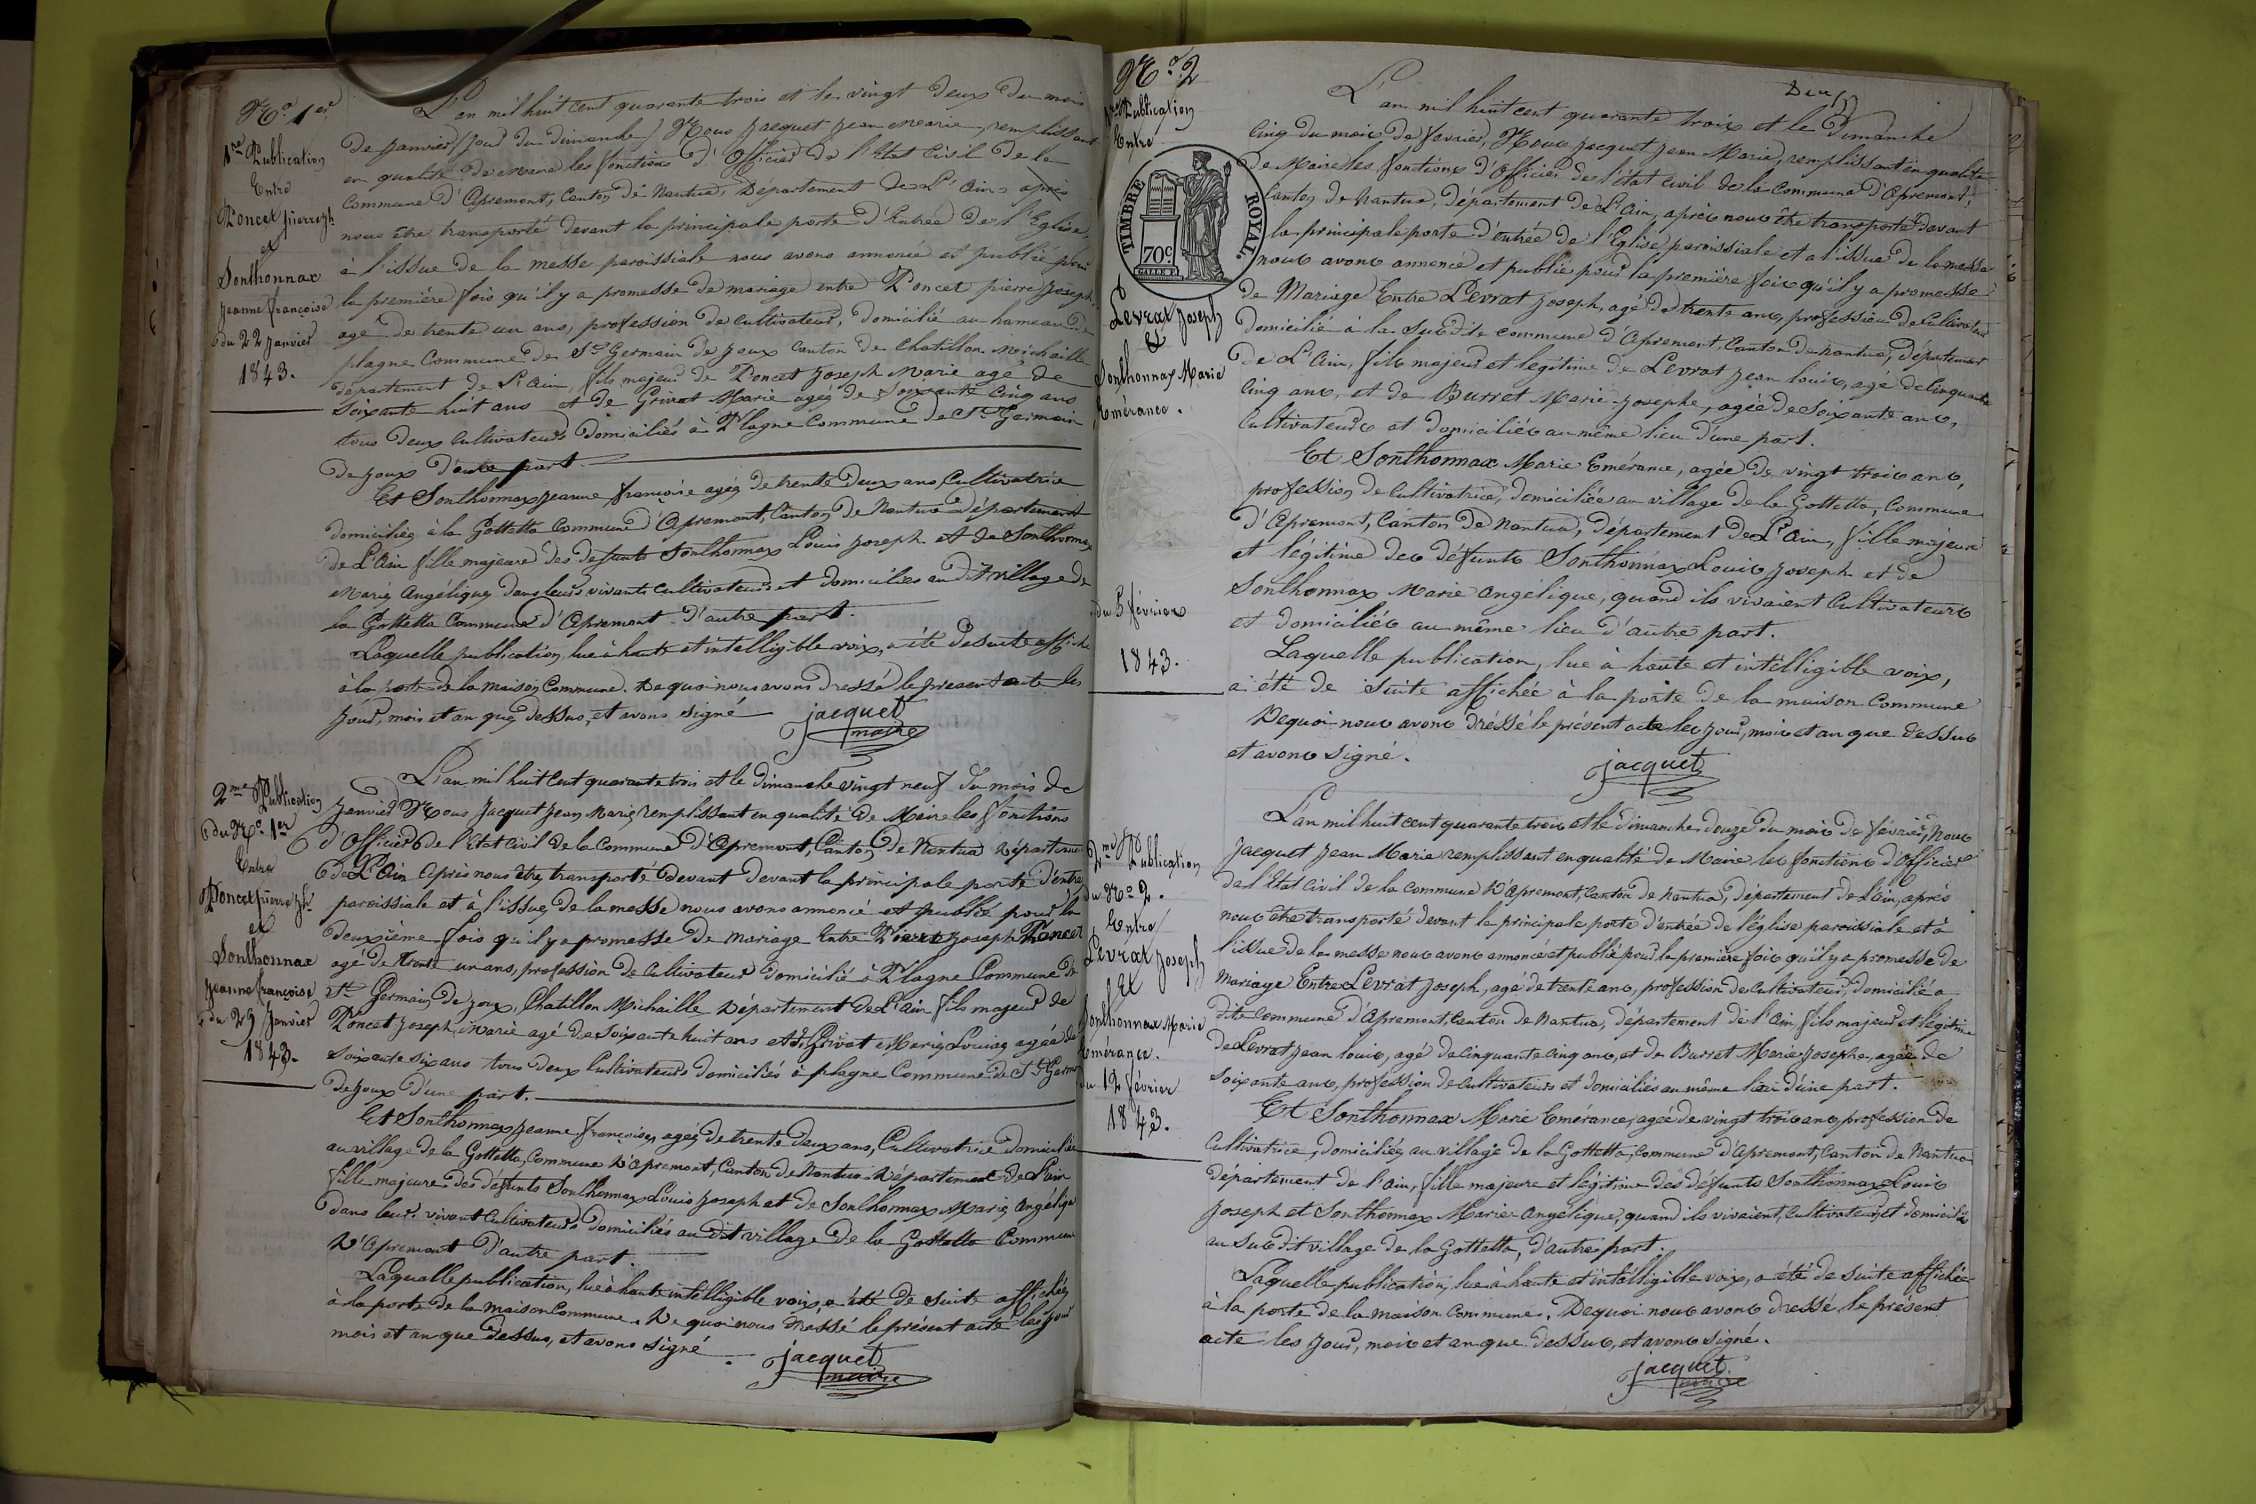 N.o 1er
1re Publication
Entre
Poncet pierre jh
et
Sonthonnax
Jeanne françoise
du 22 Janvier
1843.
L'an mil huit cent quarante trois et le vingt deux du mois
de janvier (jour du dimanche) Nous Jacquet Jean Marie, remplissant
en qualité de maire les fonctions d'Officier de l'Etat Civil de la
Commune d'Apremont, Canton de Nantua, Département de L'Ain, après
nous être transporté devant la principale porte d'Entrée de l'Eglise
à l'issue de la messe paroissiale nous avons annoncé et publié pour
la première fois qu'il y a promesse de mariage entre Poncet pierre Joseph
agé de trente un ans, profession de cultivateur, domicilié au hameau de
plagne Commune de St Germain de Joux canton de Chatillon Michaille
département de L'Ain, fils majeur de Poncet Joseph Marie agé de
soixante huit ans et de Grivat Marie agée de soixante cinq ans
tous deux Cultivateurs domiciliés à Plagne Commune de St Germain
de Joux d'une part.
Et Sonthonnax Jeanne françoise agée de trente deux ans, Cultivatrice
domiciliée à la Gottetta Commune d'Apremont, Canton de Nantua département
de L'Ain fille majeure des défunts Sonthonnax Louis Joseph et de Sonthonnax
Marie Angélique, dans leurs vivants cultivateurs et domiciliés au dit village de
la Gottetta Commune d'Apremont d'autre part.
Laquelle publication, lue à haute et intelligible voix, a été de suite affiché
à la porte de la maison Commune. De quoi nous avons dressé le présent acte les
jour, mois et an que dessus, et avons signé
jacquet
maire
2me Publication
du No 1er
Entre
Poncet pierre jh
et
Sonthonnax
Jeanne françoise
du 29 Janvier
1843.
L'an mil huit cent quarante trois et le dimanche vingt neuf du mois de
Janvier Nous Jacquet Jean Marie, remplissant en qualité de Maire les fonctions
d'Officier de l'Etat Civil de la Commune d'Apremont, Canton de Nantua Département
de L'Ain Après nous être transporté devant devant la principale porte d'entrée
paroissiale et à l'issue de la messe nous avons annoncé et publié pour la
deuxième fois qu'il y a promesse de Mariage Entre Pierre Joseph Poncet
agé de trente un ans, profession de Cultivateur domicilié à Plagne Commune de
St Germain de Joux, Chatillon Michaille Département de L'Ain fils majeur de
Poncet Joseph Marie agé de soixante huit ans et de Grivat Marie Louise agée de
soixante six ans tous deux Cultivateurs domiciliés à plagne Commune de St Germain
de Joux d'une part.
Et Sonthonnax Jeanne françoise, agée de trente deux ans, Cultivatrice domiciliée
au village de la Gottetta, Commune d'Apremont, Canton de Nantua Département de L'ain
fille majeure des défunts Sonthonnax Louis Joseph et de Sonthonnax Marie Angélique
dans leur vivant Cultivateurs domiciliés au dit village de la Gottetta Commune
d'Apremont d'autre part.
Laquelle publication, lue à haute intelligible voix, a été de suite affichée
à la porte de la Maison Commune. De quoi nous dressé le présent acte les jour
mois et an que dessus, et avons signé.
jacquet
maire
No 2
1re Publication
Entre
TIMBRE ROYAL
70c
Levrat Joseph
&
Sonthonnax Marie
Emérance.
du 5 février
1843.
Deux
L'an mil huit cent quarante trois et le Dimanche
cinq du mois de février, Nous Jacquet Jean Marie, remplissant en qualité
de Maire les fonctions d'Officier de l'état civil de la Commune d'Apremont,
Canton de Nantua, département de L'Ain, après nous être transporté devant
la principale porte d'entrée de l'Eglise paroissiale et a l'issue de la messe
nous avons annoncé et publié pour la première fois qu'il y a promesse
de Mariage Entre Levrat Joseph, agé de trente ans, profession de Cultivateur
domicilié à la susdite commune d'Apremont, Canton de Nantua, Département
de L'Ain, fils majeur et légitime de Levrat Jean louis, agé de Cinquante
cinq ans, et de Burret Marie-Josephe, agée de soixante ans,
Cultivateurs et domiciliés au même lieu d'une part.
Et Sonthonnax Marie Emérance, agée de vingt trois ans,
profession de Cultivatrice, domiciliée au village de la Gottetta, Commune
d'Apremont, Canton de Nantua, département de L'Ain, fille majeure
et légitime des défunts Sonthonnax Louis Joseph et de
Sonthonnax Marie angélique, quand ils vivaient Cultivateurs
et domiciliés au même lieu d'autre part.
Laquelle publication, lue à haute et intelligible voix,
a été de suite affichée à la porte de la maison Commune
Dequoi nous avons dréssé le présent acte les jour, mois et an que dessus
et avons signé.
jacquet
2me Publication
du No 2.
Entre
Levrat Joseph
et
Sonthonnax Marie
Emérance.
du 12 février
1843.
L'an mil huit cent quarante trois et le dimanche douze du mois de février, Nous
Jacquet Jean Marie remplissant en qualité de Maire les fonctions d'Officier
de l'Etat Civil de la Commune d'Apremont, Canton de Nantua, département de L'ain, après
nous être transporté devant la principale porte d'entrée de l'église paroissiale et à
l'issue de la messe nous avons annoncé et publié pour la première fois qu'il y a promesse de
mariage Entre Levrat Joseph, agé de trente ans, profession de Cultivateur, domicilié a
dite Commune d'Apremont, Canton de Nantua, département de l'Ain, fils majeur et légitime
de Levrat Jean louis, agé de cinquante cinq ans, et de Burret Marie Josephe, agée de
soixante ans, profession de Cultivateurs et domiciliés au même lieu d'une part.
Et Sonthonnax Marie Emérance, agée de vingt trois ans, profession de
Cultivatrice, domiciliée au village de la Gottetta, Commune d'Apremont, Canton de Nantua
département de l'ain, fille majeure et légitime des défunts Sonthonnax Louis
Joseph et Sonthonnax Marie-Angélique, quand ils vivaient, Cultivateurs et domiciliés
au susdit village de la Gottetta, d'autre part.
Laquelle publication, lue à haute et intelligible voix, a été de suite affichée
à la porte de la Maison Commune. Dequoi nous avons dressé le présent
acte les jour, mois et an que dessus, et avons signé.
jacquet
maire